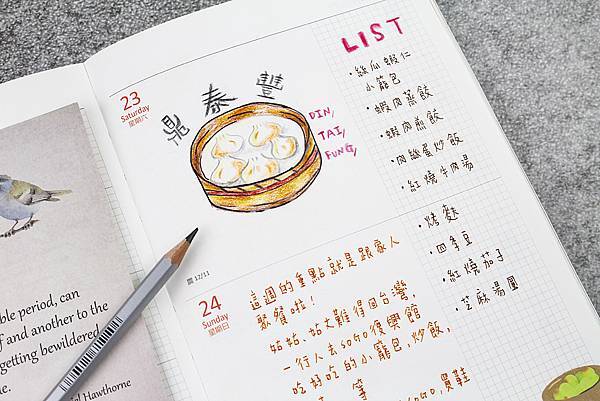 23
Saturday
星期六
鼎泰豐
DIN,
TAI,
FUNG,
LIST
·絲瓜蝦仁
小籠包
·蝦肉蒸餃
·蝦肉煎餃
·肉絲蛋炒飯
·紅燒牛肉湯
·烤麩
·四季豆
·紅燒茄子
·芝麻湯圓
農 12/11
24
Sunday
星期日
這週的重點就是跟家人
聚餐啦!
姑姑、姑丈難得回台灣,
一行人去SOGO復興館
吃好吃的小籠包,炒飯,
等
GO,買鞋
ble period, can
ff and another to the
getting bewildered
e.
el Hawthorne